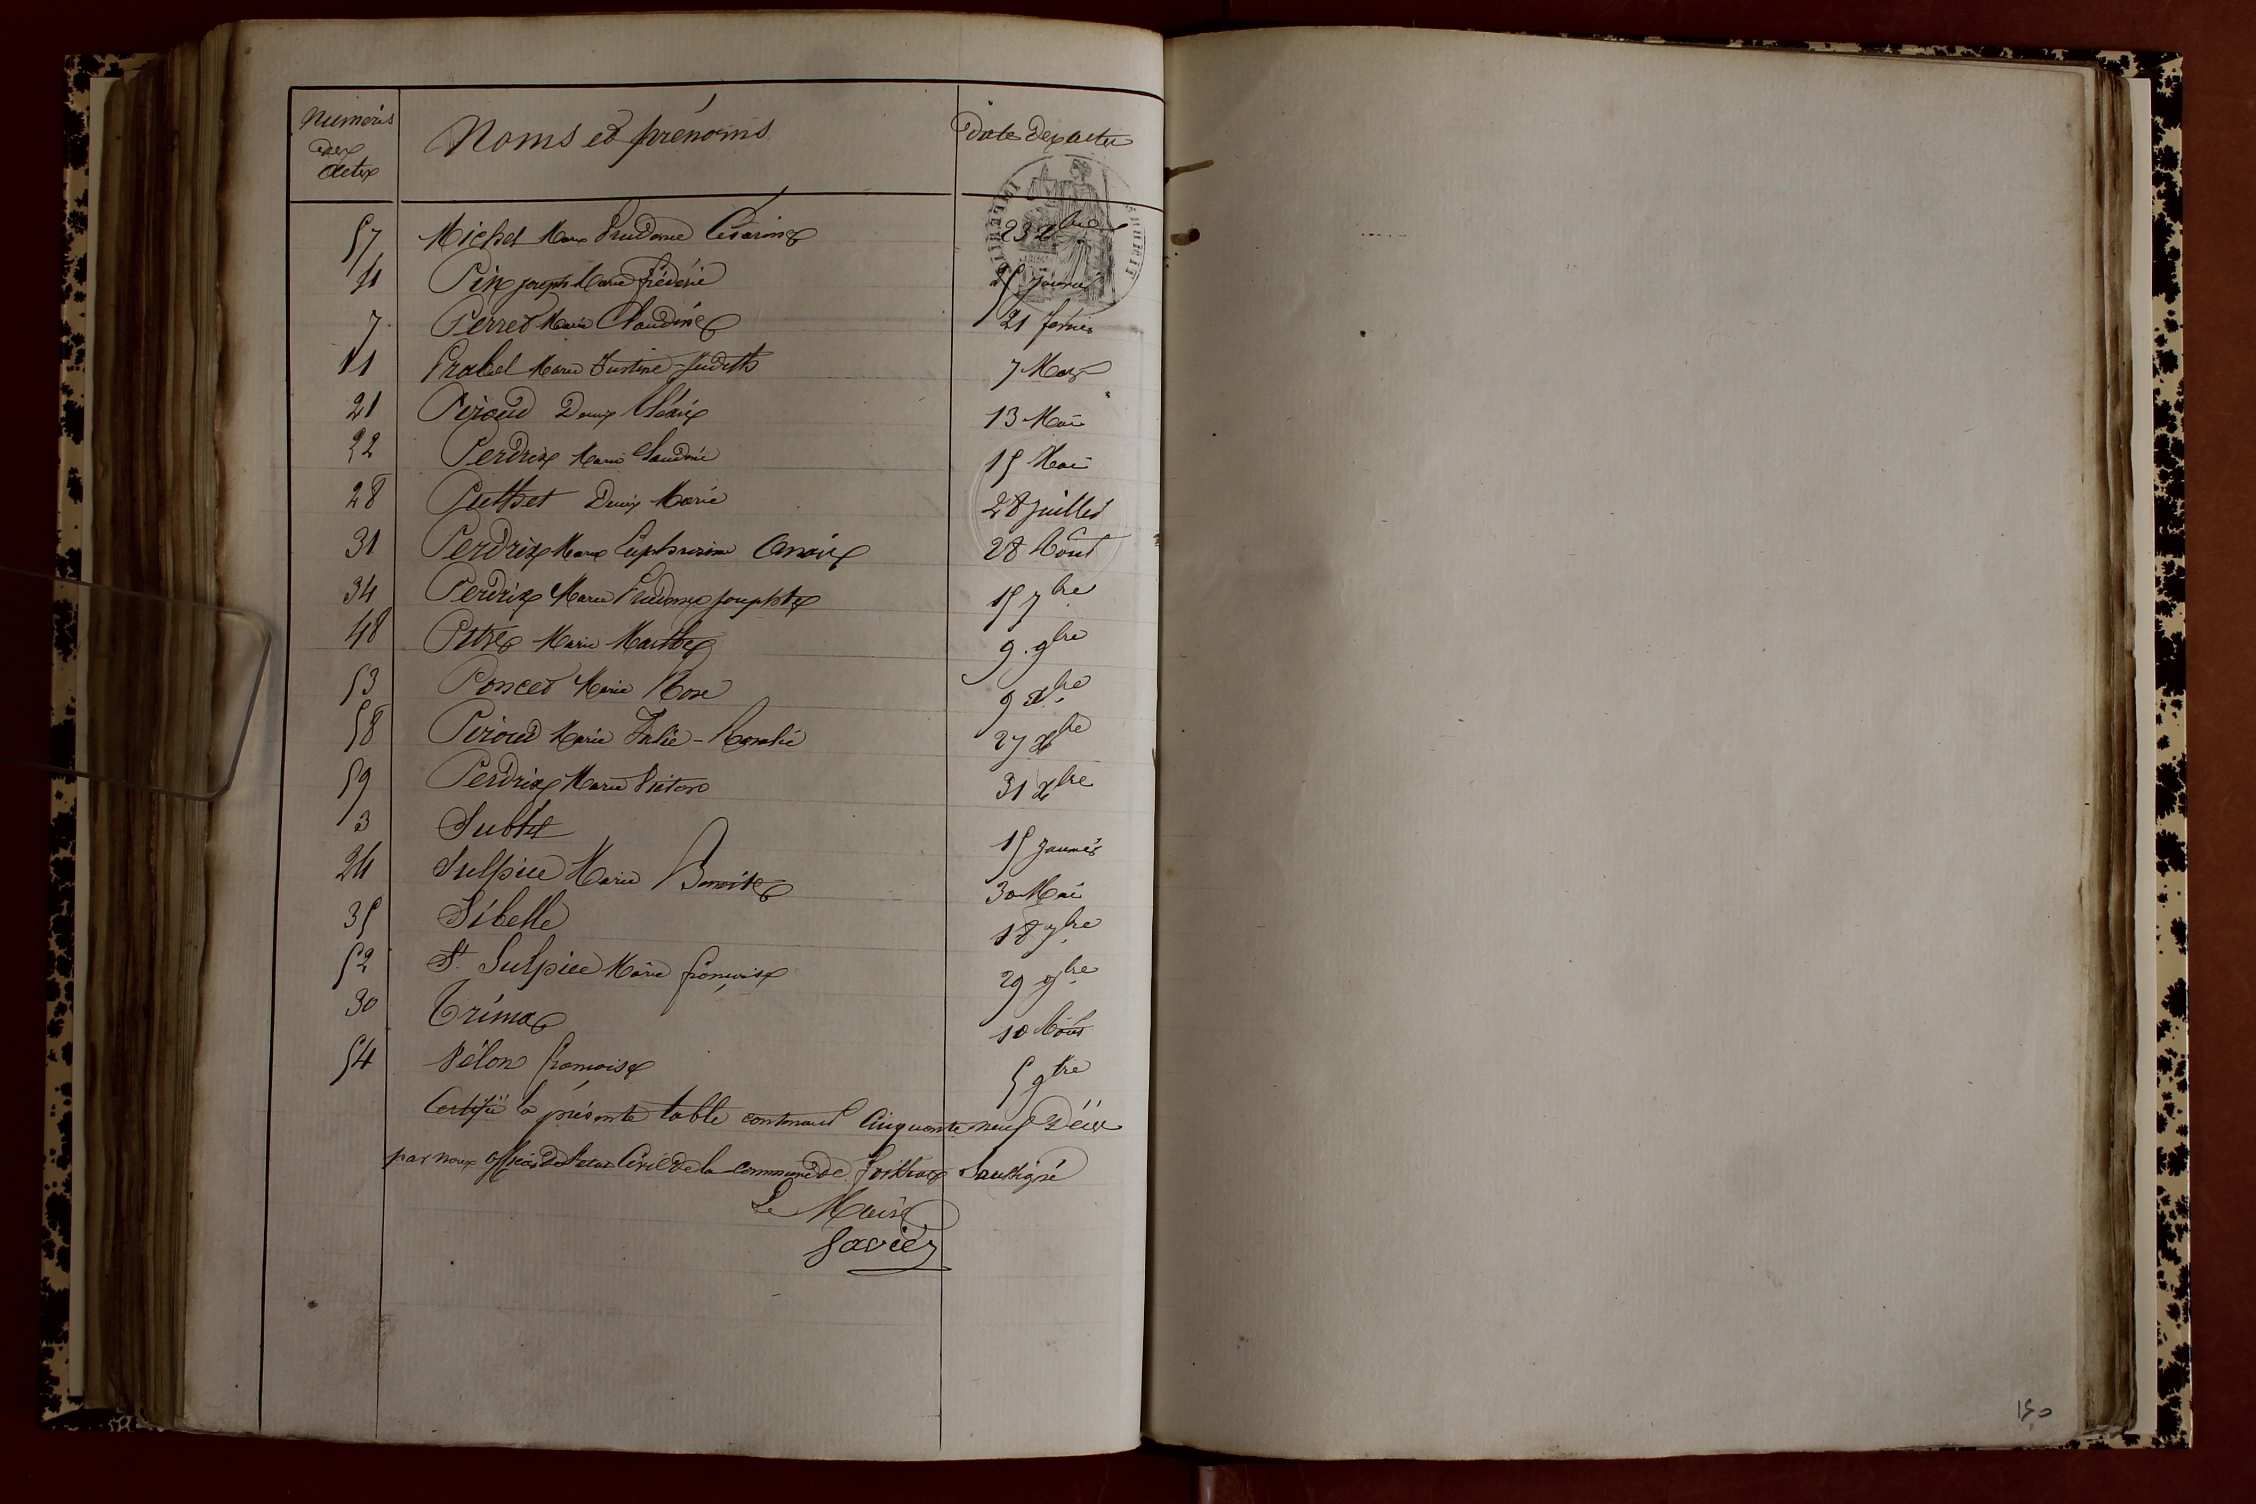 Numéros des Actes Noms et prénoms Date des actes
57 Michel Marie Prudence Césarine 23 Xbre
4 Pin joseph Marie frédéric 25 Janvier
7 Perret Marie Claudine 21 fevrier
11 Prabel Marie Justine-Judith 7 Mars
21 Piroud Denis 13 Mai
22 Perdrix Marie Claudine 15 Mai
28 Puthet Denis Marie 28 juillet
31 Perdrix Marie Euphrosine 28 Aout
34 Perdrix Marie Prudence josephte 15 7bre
48 Pitre Marie Marthe 9. 9bre
53 Poncet Marie Rose 9 Xbre
58 Piroud Marie Julie-Rosalie 27 Xbre
59 Perdrix Marie Victore 31 Xbre
3 Subtil 15 janvier
24 Sulpice Marie Benoite 30 Mai
35 Sibelle 18 7bre
52 St. Sulpice Marie françoise 29 9bre
30 Trima 10 Aout
54 Vélon françoise 5 9bre
Certifié la présente table contenant Cinquante neuf Décès
par nous officier de l'etat Civil de la Commune de Soussigné
Le Maire
150